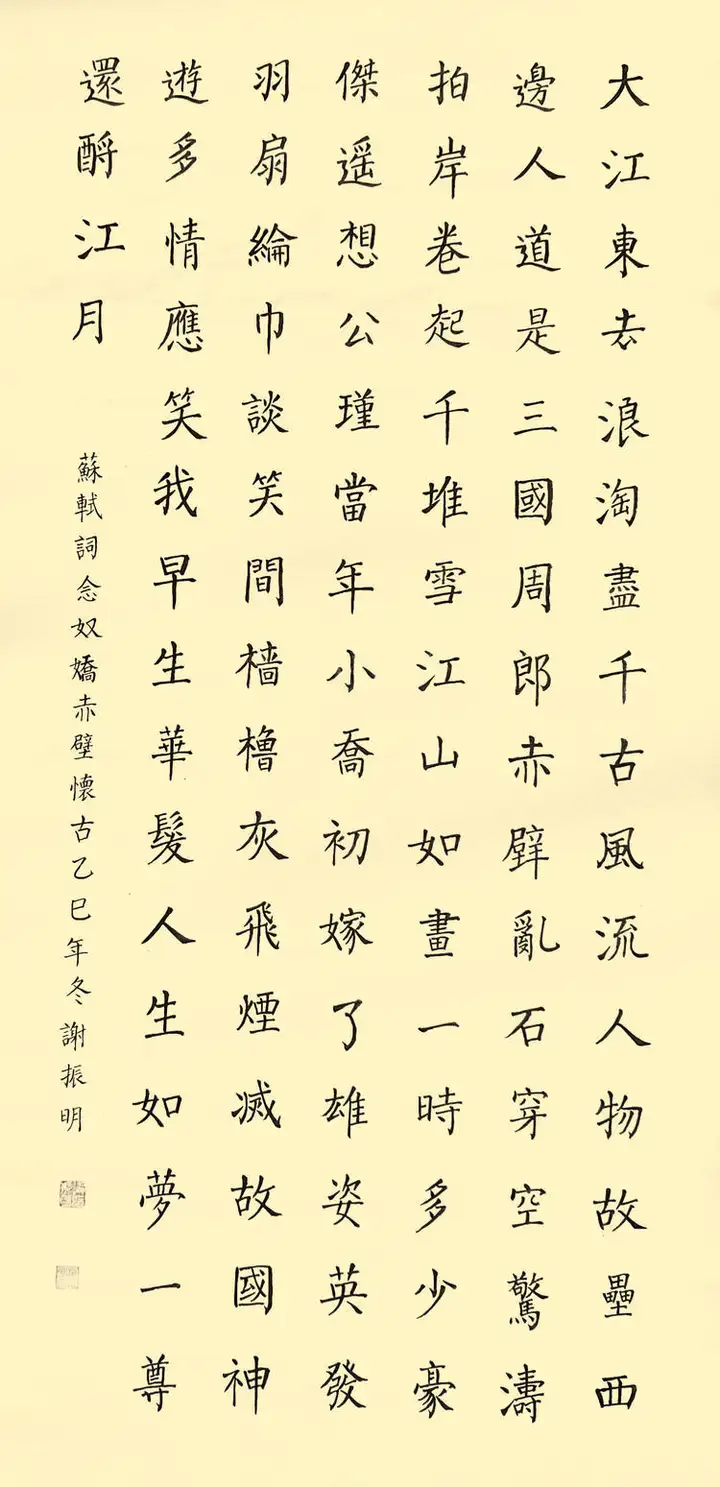 大江東去浪淘盡千古風流人物故壘西
邊人道是三國周郎赤壁亂石穿空驚濤
拍岸卷起千堆雪江山如畫一時多少豪
傑遥想公瑾當年小喬初嫁了雄姿英發
羽扇綸巾談笑間檣櫓灰飛煙滅故國神
遊多情應笑我早生華髮人生如夢一尊
還酹江月
蘇軾詞念奴嬌赤壁懷古乙巳年冬謝振明